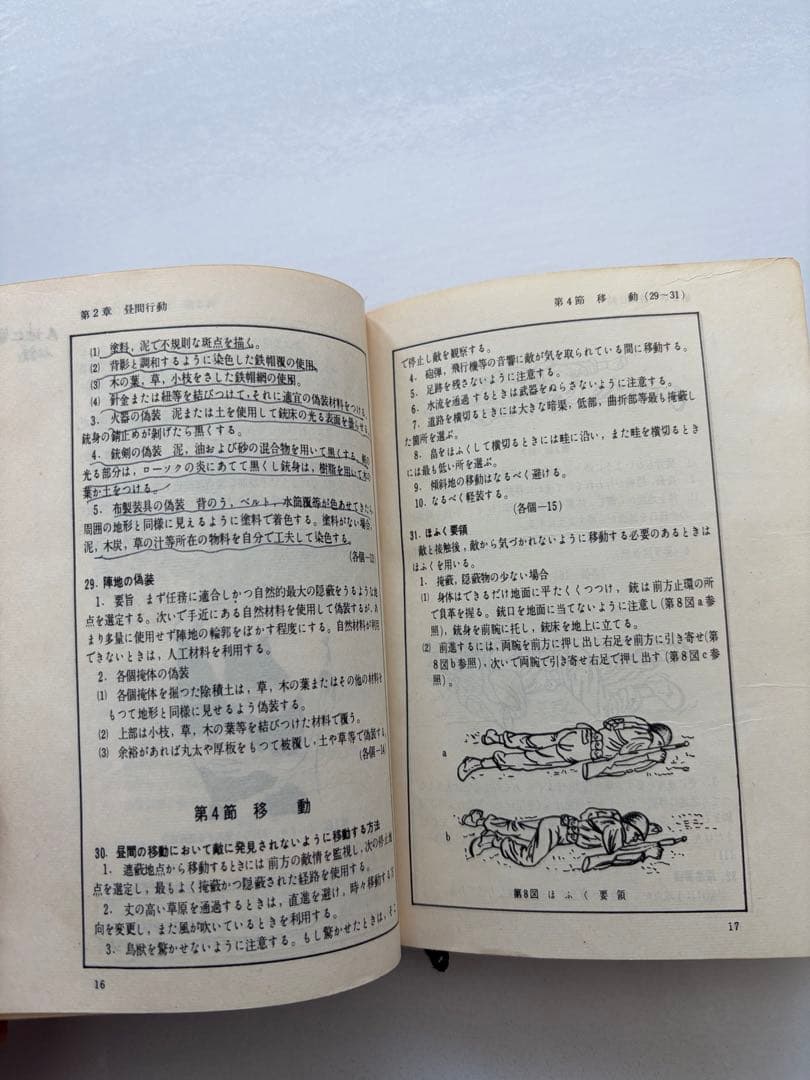 第2章 昼間行動
(1) 塗料,泥で不規則な斑点を描く。
(2) 背影と調和するように染色した鉄帽覆の使用。
(3) 木の葉,草,小枝をさした鉄帽網の使用。
(4) 針金または紐等を結びつけて,それに適宜の偽装材料をつける。
3. 火器の偽装 泥または土を使用して銃床の光る表面を曇らせる
銃身の錆止めが剥げたら黒くする。
4. 銃剣の偽装 泥,油および砂の混合物を用いて黒くする。
光る部分は,ローソクの炎にあてて黒くし銃身は,樹脂を用いて木の
葉か土をつける。
5. 布製装具の偽装 背のう,ベルト,水筒覆等が色あせてきたら
周囲の地形と同様に見えるように塗料で着色する。塗料がない場合,
泥,木炭,草の汁等所在の物料を自分で工夫して染色する。
(各個-13)
29. 陣地の偽装
1. 要旨 まず任務に適合しかつ自然的最大の隠蔽をうるような地
点を選定する。次いで手近にある自然材料を使用して偽装するが,あ
まり多量に使用せず陣地の輪郭をぼかす程度にする。自然材料が利用
できないときは,人工材料を利用する。
2. 各個掩体の偽装
(1) 各個掩体を掘つた除積土は,草,木の葉またはその他の材料を
もつて地形と同様に見せるよう偽装する。
(2) 上部は小枝,草,木の葉等を結びつけた材料で覆う。
(3) 余裕があれば丸太や厚板をもつて被覆し,土や草等で偽装する。
(各個-14)
第4節 移 動
30. 昼間の移動において敵に発見されないように移動する方法
1. 遮蔽地点から移動するときには前方の敵情を監視し,次の停止地
点を選定し,最もよく掩蔽かつ隠蔽された経路を使用する。
2. 丈の高い草原を通過するときは,直進を避け,時々移動する方
向を変更し,また風が吹いているときを利用する。
3. 鳥獣を驚かせないように注意する。もし驚かせたときは,そこ
16
第4節 移 動 (29~31)
で停止し敵を観察する。
4. 砲弾,飛行機等の音響に敵が気を取られている間に移動する。
5. 足跡を残さないように注意する。
6. 水流を通過するときは武器をぬらさないように注意する。
7. 道路を横切るときには大きな暗渠,低部,曲折部等最も掩蔽し
た箇所を選ぶ。
8. 畠をほふくして横切るときには畦に沿い,また畦を横切るとき
には最も低い所を選ぶ。
9. 傾斜地の移動はなるべく避ける。
10. なるべく軽装する。
(各個-15)
31. ほふく要領
敵と接触後,敵から気づかれないように移動する必要のあるときは
ほふくを用いる。
1. 掩蔽,隠蔽物の少ない場合
(1) 身体はできるだけ地面に平たくくつつけ,銃は前方止環の所
で負革を握る。銃口を地面に当てないように注意し(第8図a参
照),銃身を前腕に托し,銃床を地上に立てる。
(2) 前進するには,両腕を前方に押し出し右足を前方に引き寄せ(第
8図b参照),次いで両腕で引き寄せ右足で押し出す(第8図c参
照)。
a
b
第8図 ほふく要領
17